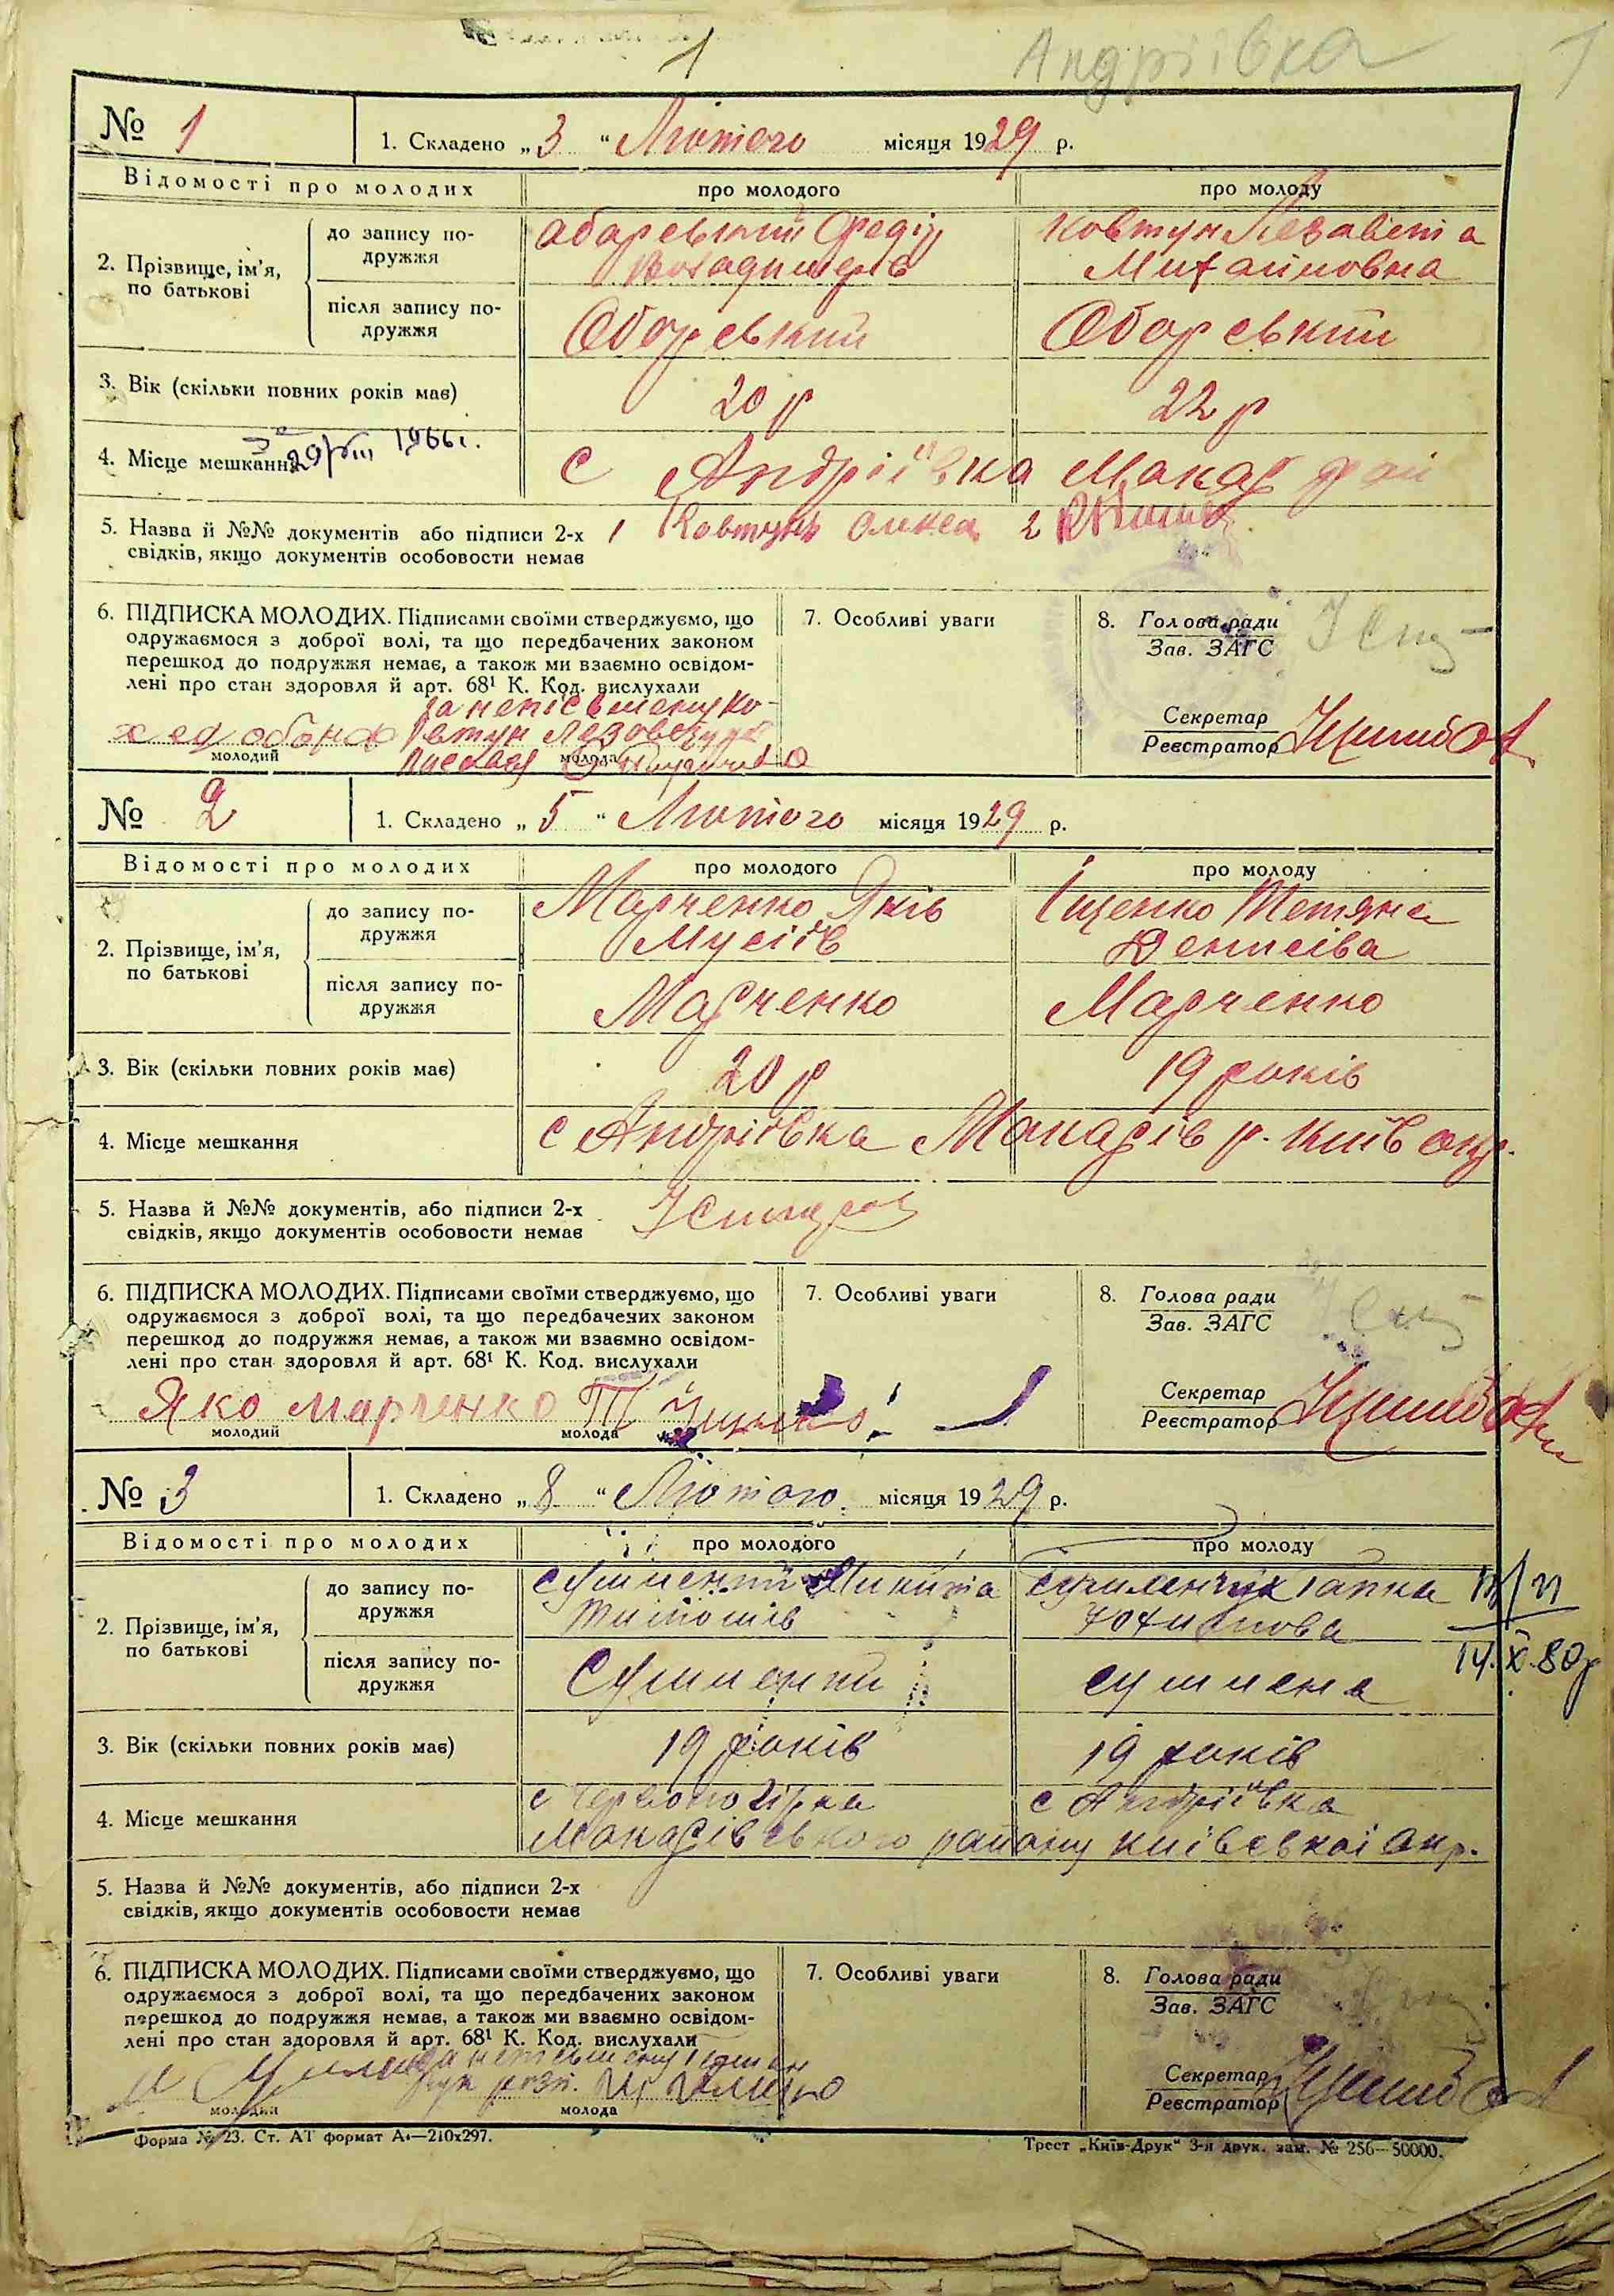 1
Андріівка
1
№ 1
1. Складено „3“ Лютого місяця 1929 р.
Відомості про молодих
про молодого
про молоду
2. Прізвище, ім'я, по батькові
до запису подружжя
Федір
Ковтун Лезавета
Михайловна
після запису подружжя
Обаревский
Обаревский
3. Вік (скільки повних років має)
20 р
22 р
4. Місце мешкання
1966г.
с Андріївка Макар рай
5. Назва й №№ документів або підписи 2-х
1 Ковтун Олекса 2
свідків, якщо документів особовости немає
6. ПІДПИСКА МОЛОДИХ. Підписами своїми стверджуємо, що
одружаємося з доброї волі, та що передбачених законом
перешкод до подружжя немає, а також ми взаємно освідом-
лені про стан здоровля й арт. 68¹ К. Код. вислухали
7. Особливі уваги
8. Голова ради
Зав. ЗАГС
Секретар
Реєстратор
молодий
молода
№ 2
1. Складено „5“ Лютого місяця 1929 р.
Відомості про молодих
про молодого
про молоду
2. Прізвище, ім'я, по батькові
до запису подружжя
Марченко Яків
Мусіїв
Іщенко Тетяна
Денисіва
після запису подружжя
Марченко
Марченко
3. Вік (скільки повних років має)
20 р
19 років
4. Місце мешкання
с Андріївка Макарів р. Київ окр.
5. Назва й №№ документів, або підписи 2-х
свідків, якщо документів особовости немає
6. ПІДПИСКА МОЛОДИХ. Підписами своїми стверджуємо, що
одружаємося з доброї волі, та що передбачених законом
перешкод до подружжя немає, а також ми взаємно освідом-
лені про стан здоровля й арт. 68¹ К. Код. вислухали
7. Особливі уваги
8. Голова ради
Зав. ЗАГС
Секретар
Реєстратор
Яко марченко
молодий
молода
№ 3
1. Складено „8“ Лютого місяця 1929 р.
Відомості про молодих
про молодого
про молоду
2. Прізвище, ім'я, по батькові
до запису подружжя
Микита
Гапка
після запису подружжя
14.X.80р
3. Вік (скільки повних років має)
19 років
19 років
4. Місце мешкання
с Червоногірка
с Андріївка
Макарівського району київської окр.
5. Назва й №№ документів, або підписи 2-х
свідків, якщо документів особовости немає
6. ПІДПИСКА МОЛОДИХ. Підписами своїми стверджуємо, що
одружаємося з доброї волі, та що передбачених законом
перешкод до подружжя немає, а також ми взаємно освідом-
лені про стан здоровля й арт. 68¹ К. Код. вислухали
7. Особливі уваги
8. Голова ради
Зав. ЗАГС
Секретар
Реєстратор
молодий
молода
Форма № 23. Ст. АТ формат А4—210x297.
Трест „Київ-Друк“ 3-я друк. зам. № 256—50000.